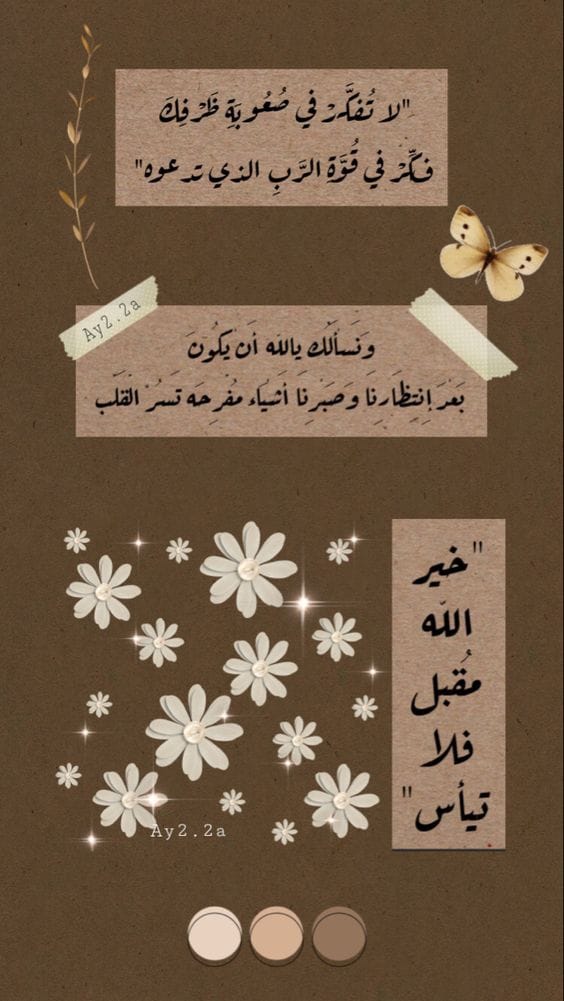 "لا تُفكَّرْ في صُعُوبَةِ ظَرْفِكَ
فكِّرْ في قُوَّةِ الرَّبِ الذي تدعوه"
Ay2.2a
وَنَسألُك يالله أن يَكُونَ
بَعْدَ إنتِظَارِنَا وَصَبْرِنَا أشيَاء مُفرِحَه تَسرُ القَلب
"خير
الله
مُقبل
فلا
تيأس"
Ay2.2a